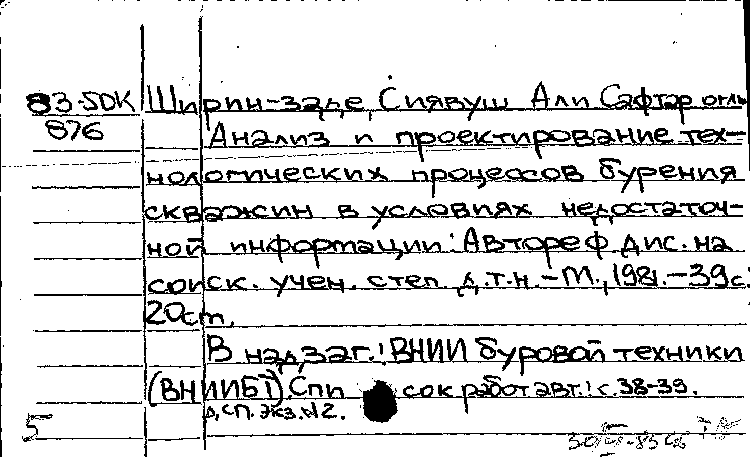 83-5DK Ширин-заде, Сиявуш Али Сафтар оглы
876 Анализ и проектирование тех-
нологических процессов бурения
скважин в условиях недостаточ-
ной информации: Автореф. дис. на
соиск. учен. степ. д.т.н. - М., 1981. - 39 с.
20см.
В надзаг.: ВНИИ буровой техники
(ВНИИБТ). Спи сок работ авт.: с. 38-39.
д.сп. экз. N2.
5